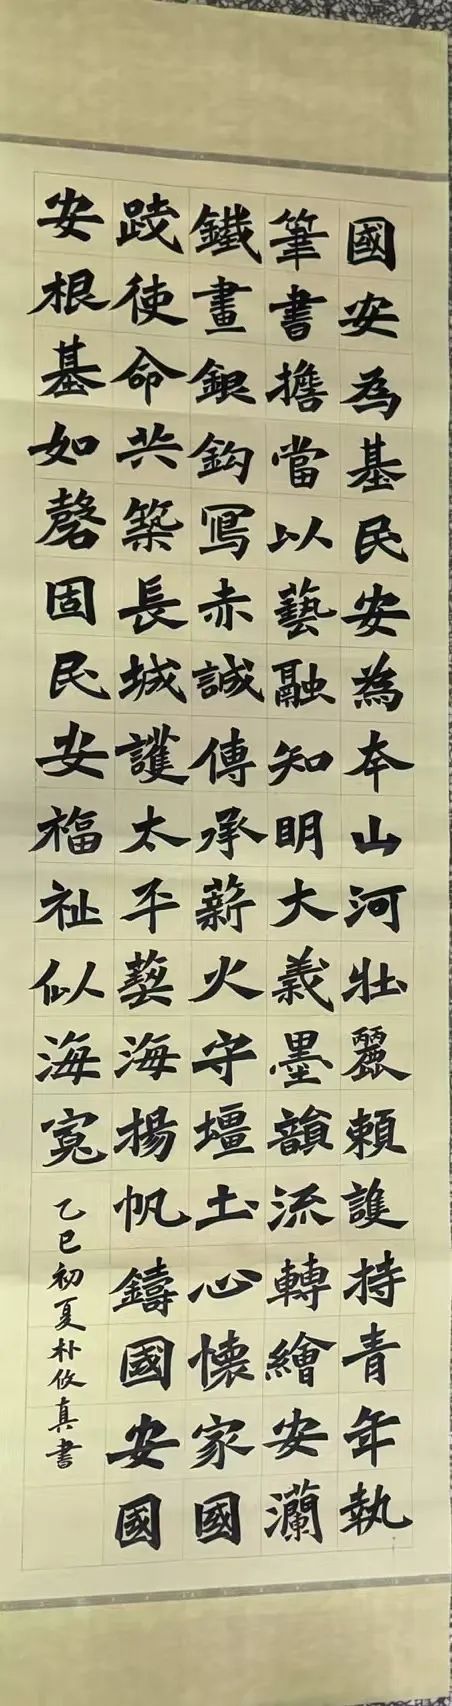 國安為基民安為本山河壯麗賴護持青年執
筆書擔當以藝融知明大義墨韻流轉繪安瀾
鐵畫銀鈎寫赤誠傳承薪火守壃土心懷家國
踐使命共築長城護太平藝海揚帆鑄國安國
安根基如磬固民安福祉似海寬
乙巳初夏朴攸真書